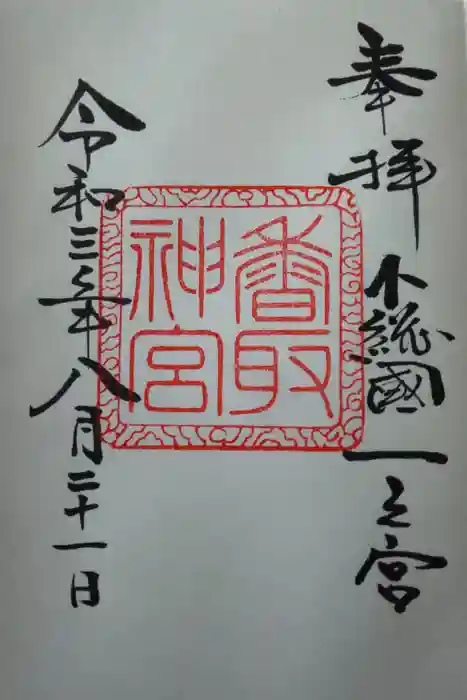 奉拝
下総國一之宮
香取
神宮
令和三年八月二十一日